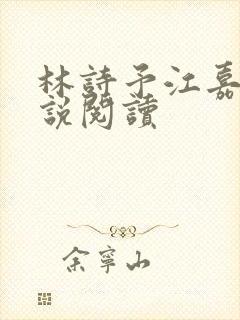 林詩予江嘉
說閱讀
余寧山